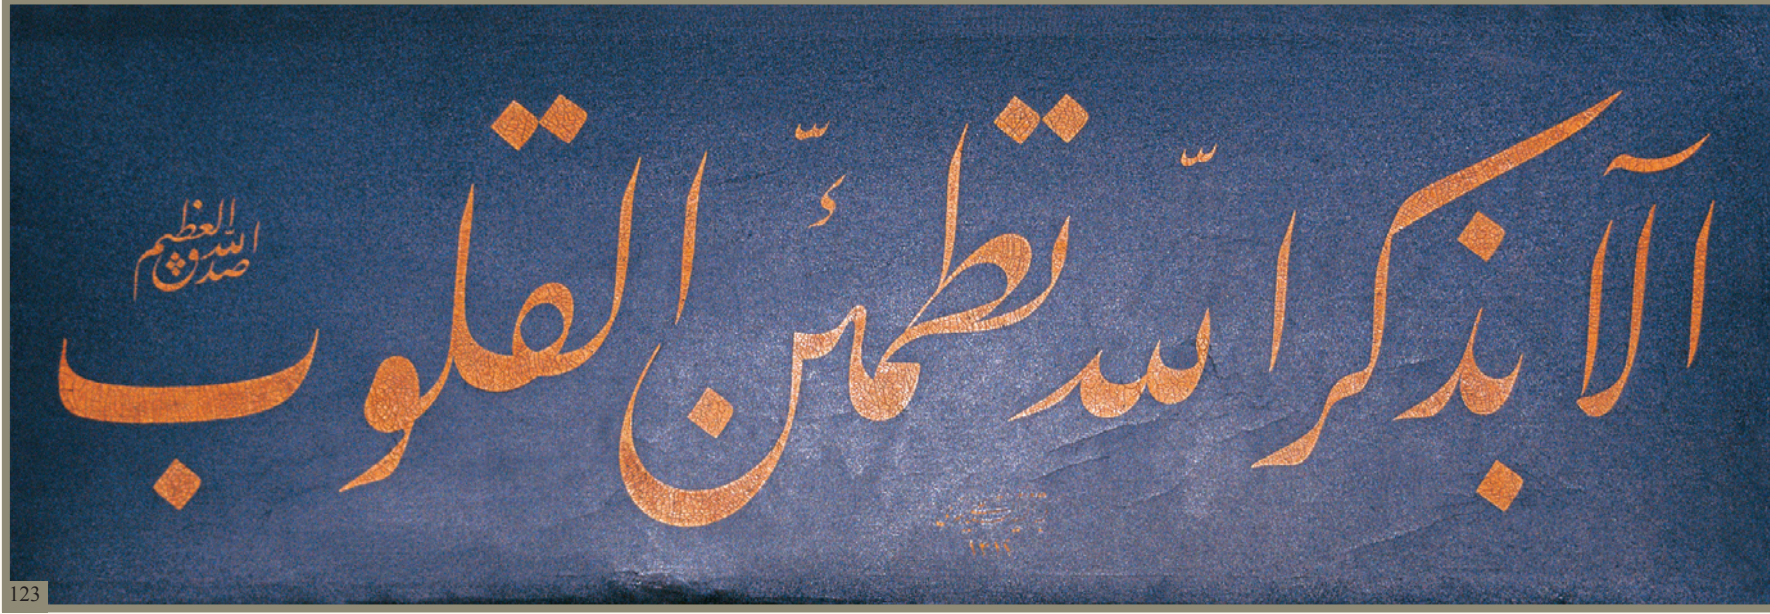 الآ بذكر الله تطمئن القلوب
صدق الله العظيم
123